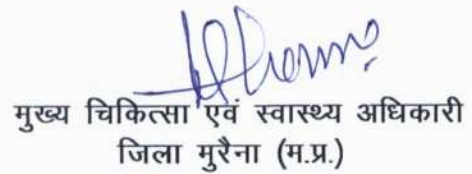 मुख्य चिकित्सा एवं स्वास्थ्य अधिकारी
जिला मुरैना (म.प्र.)